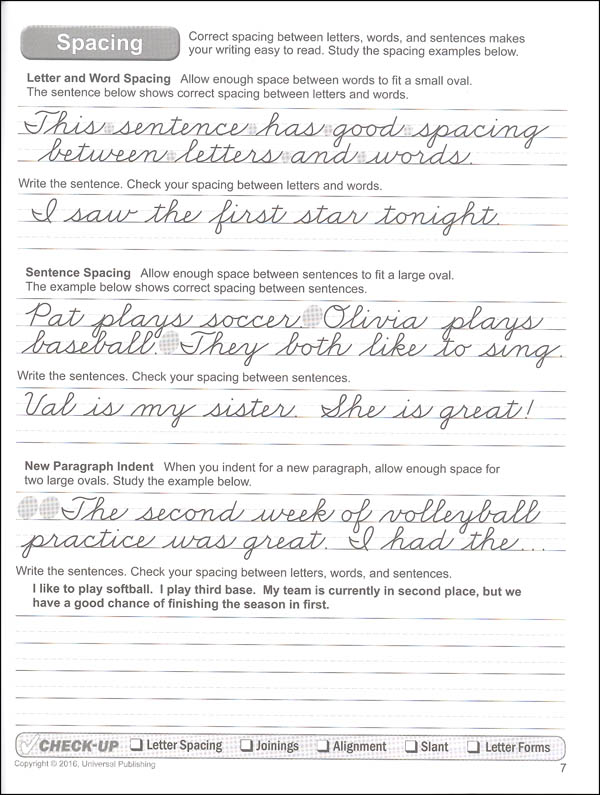 Spacing
Correct spacing between letters, words, and sentences makes
your writing easy to read. Study the spacing examples below.
Letter and Word Spacing Allow enough space between words to fit a small oval.
The sentence below shows correct spacing between letters and words.
This sentence has good spacing
between letters and words.
Write the sentence. Check your spacing between letters and words.
I saw the first star tonight.
Sentence Spacing Allow enough space between sentences to fit a large oval.
The example below shows correct spacing between sentences.
Pat plays soccer. Olivia plays
baseball. They both like to sing.
Write the sentences. Check your spacing between sentences.
Val is my sister. She is great!
New Paragraph Indent When you indent for a new paragraph, allow enough space for
two large ovals. Study the example below.
The second week of volleyball
practice was great. I had the...
Write the sentences. Check your spacing between letters, words, and sentences.
I like to play softball. I play third base. My team is currently in second place, but we
have a good chance of finishing the season in first.
CHECK-UP Letter Spacing Joinings Alignment Slant Letter Forms
Copyright © 2016, Universal Publishing
7